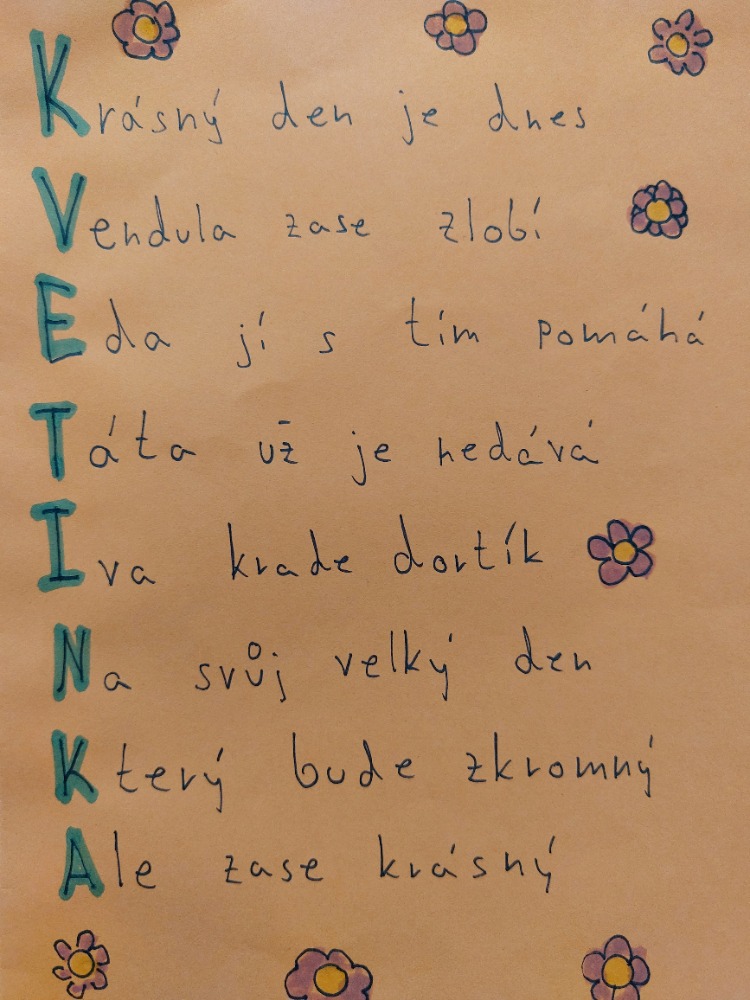 Krásný den je dnes
Vendula zase zlobí
Eda jí s tím pomáhá
Táta už je nedává
Iva krade dortík
Na svůj velký den
Který bude zkromný
Ale zase krásný